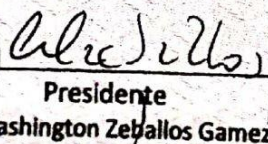 Presidente
ashington Zeballos Gamez